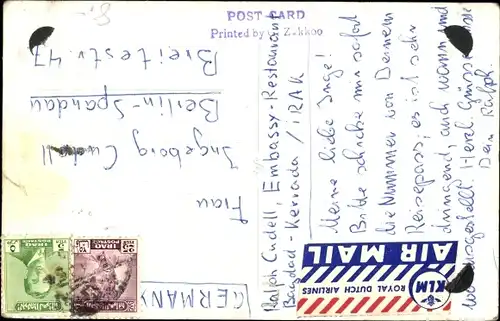 POST CARD
Printed by
Zakkoo
Ralph Cudell, Embassy-Restaurant
Bagdad-Kerrada / IRAK
Meine liebe Inge!
Bitte schreibe mir sofort
die Nummer von Deinem
Reisepass, es ist sehr
dringend, auch wann und
wo ausgestellt! Herzl. Grüsse
Dein Ralph.
Frau
Ingeborg Cudell
Berlin-Spandau
Breitestr. 47
GERMANY
AIR MAIL
KLM
ROYAL DUTCH AIRLINES
IRAQ
POSTAGE
IRAQ
POSTAGE